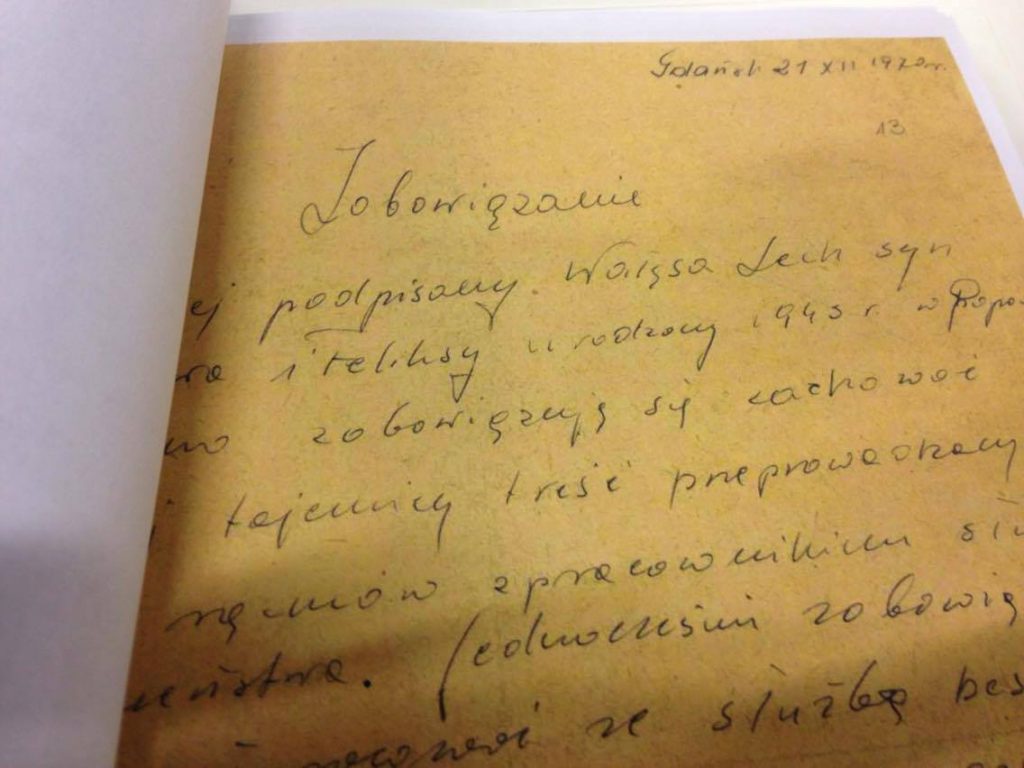 Gdańsk 21 XII 1970 r.
13
Zobowiązanie
ej podpisany. Wałęsa Lech syn
i Feliksy urodzony 1943 r. w Popo
zobowiązuję się zachować
tajemnicy treść przeprowadzany
z pracownikiem słu
eństwa. Jednocześnie zobowią
ze służbą bes